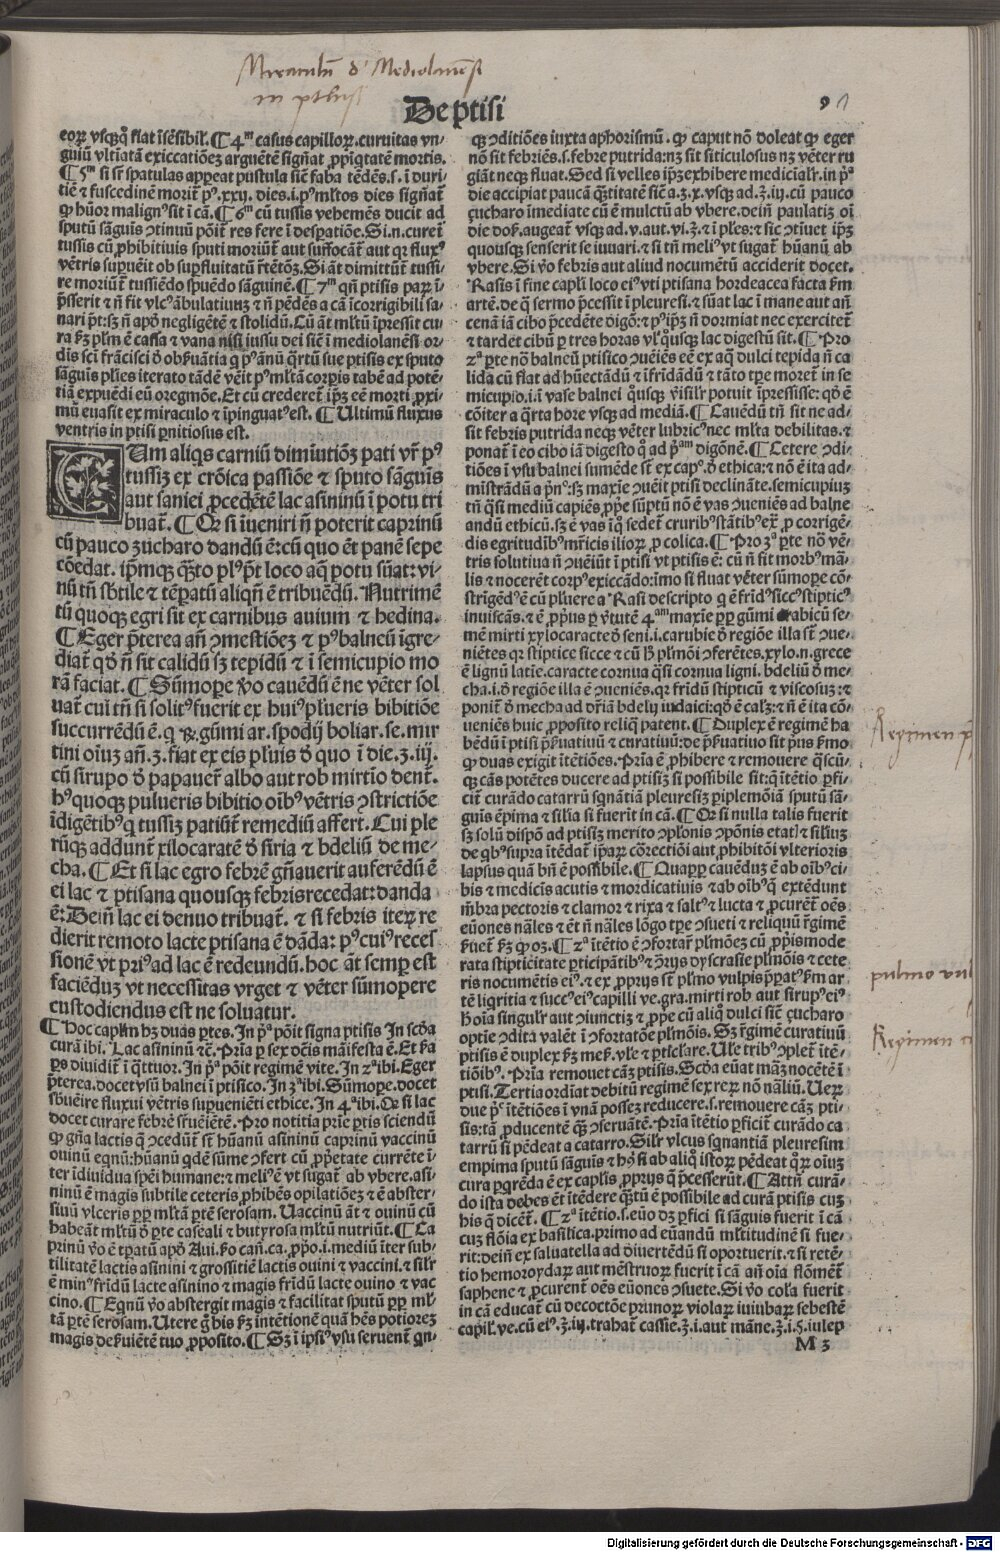 Miraculū d' Mediolanēsi
in pthysi
De ptisi
91
eoꝝ vſqꝙ̃ fiat ĩſẽſibil̃. ¶ 4ᵐ caſus capilloꝝ.curuitas vn⸗
guiū vltiata exiccatiõez arguẽte ſigñat ꝓpĩqtatẽ mortis.
¶ 5ᵐ ſi ſr̃ ſpatulas appeat puſtula ſic̃ faba tẽdẽs.ſ.ĩ duri⸗
tiẽ ⁊ fuſcedinẽ morit̃ pꝰ.xxij.dies.i.pꝰ mĩtos dies ſigñat̃
ꝙ hũor malignꝰ ſit ĩ cã. ¶ 6ᵐ cũ tuſſis vehemẽs ducit ad
ſputũ ſãguis ↄtinuũ põit̃ res fere ĩ deſpatiõe. Si.n.curet̃
tuſſis cũ ꝓhibitiuis ſputi moriũt̃ aut ſuffocãt̃ aut qꝛ fluxꝰ
vẽtris ſupuẽit ob ſupfluitatũ r̃tẽtõꝫ. Si ãt dimittũt̃ tuſſi⸗
re moriũt̃ tuſſiẽdo ſpuẽdo ſãguinẽ. ¶ 7ᵐ qñ ptiſis paꝝ ĩ⸗
p̃ſſerit ⁊ ñ fit vlcꝰ ãbulatiuuꝫ ⁊ ñ pẽdẽs a cã ĩcorrigibili ſa⸗
nari p̃t: ſꝫ ñ apõ negligẽtẽ ⁊ ſtolidũ. Cũ ãt mĩtũ ĩpreſſit cu⸗
ra ẜꝫ plm̃ ẽ caſſa ⁊ vana niſi iuſſu dei ſic̃ ĩ mediolanẽſi or⸗
dis ſci frãciſci ď obſuãtia q pꝰ ãnũ q̃rtũ ſue ptiſis ex ſputo
ſãguis plies iterato tãdẽ vẽit pꝰ mĩtã corp̃is tabẽ ad potẽ⸗
tiã expuẽdi eũ oregmõe. Et cũ crederet̃ ip̃ꝫ eẽ morti ꝓxi⸗
mũ euaſit ex miraculo ⁊ ĩpinguatꝰ eſt. ¶ Ultimũ fluxus
ventris in ptiſi pnitioſus eſt.
CUm aliqs carniũ dimiutiõꝫ pati vr̃ pꝰ
tuſſiꝫ ex crõica paſſiõe ⁊ ſputo ſãguis
aut ſaniei ꝓcedẽtẽ lac aſininũ ĩ potu tri
buat̃. ¶ Qꝛ ſi iueniri ñ poterit caprinũ
cũ pauco zucharo dandũ ẽ: cũ quo ẽt panẽ ſepe
cõedat. ip̃mqꝫ q̃ꝫto plꝰ p̃t loco aq̃ potu ſũat: vi⸗
nũ tñ ſbtile ⁊ tẽpatũ aliqñ ẽ tribuẽdũ. Nutrimẽ
tũ quoqꝫ egri ſit ex carnibus auium ⁊ hedina.
¶ Eger p̃terea añ ↄmeſtiõeꝫ ⁊ pꝰ balneũ ĩgre⸗
diat̃ qď ñ ſit calidũ ſꝫ tepidũ ⁊ ĩ ſemicupio mo
rã faciat. ¶ Sũmope ꝟo cauẽdũ ẽ ne vẽter ſol
uat̃ cui tñ ſi ſolitꝰ fuerit ex huiꝰ plueris bibitiõe
ſuccurrẽdũ ẽ. ꝗ ℞. gũmi ar. ſpodij boliar. ſe. mir
tini oiuꝫ añ. ʒ. fiat ex eis pluis ď quo ĩ die. ʒ. iij.
cũ ſirupo ď papauer̃ albo aut rob mirtio dent̃.
hꝰ quoqꝫ pulueris bibitio oĩbꝰ vẽtris ↄſtrictiõe
ĩdigẽtibꝰ q tuſſiꝫ patiũt̃ remediũ affert. Cui ple
rũqꝫ addunt̃ xilocaratẽ ď ſiria ⁊ bdeliũ de me⸗
cha. ¶ Et ſi lac egro febrẽ gñauerit auferẽdũ ẽ
ei lac ⁊ ptiſana quouſqꝫ febris recedat: danda
ẽ: Dein̄ lac ei denuo tribuat̃. ⁊ ſi febris iteꝝ re
dierit remoto lacte ptiſana ẽ dãda: pꝰ cuiꝰ receſ
ſionẽ vt priꝰ ad lac ẽ redeundũ. hoc ãt ſemp eſt
faciẽduꝫ vt neceſſitas vrget ⁊ vẽter ſũmopere
cuſtodiendus eſt ne ſoluatur.
¶ Hoc caplm̃ hꝫ duas ptes. In pᵃ põit ſigna ptiſis In ſcďa
curã ibi. Lac aſininũ ⁊c̃. Pria p ſex doc̃is mãifeſta ẽ. Et ſcďa
ps diuidit̃ ĩ q̃ttuor. In pᵃ põit regimẽ vite. In 2ᵃ ibi. Eger
p̃terea. docet vſũ balnei ĩ ptiſico. In 3ᵃ ibi. Sũmope. docet
ſbuẽire fluxui vẽtris ſupueniẽti ethice. In 4ᵃ ibi. Qꝛ ſi lac
docet curare febrẽ ſr̃uẽiẽtẽ. Pro notitia prie ptis ſciendũ
ꝙ gña lactis q̃ ↄcedũt̃ ſt̃ hũanũ aſininũ caprinũ vaccinũ
ouinũ eqnũ: hũanũ qdẽ ſũme ↄfert cũ ꝓp̃etate currẽte ĩ⸗
ter ĩdiuidua ſpẽi humane: ⁊ meliꝰ ẽ vt ſugat̃ ab vbere. aſi⸗
ninũ ẽ magis ſubtile ceteris ꝓhibẽs opilatiõeꝫ ⁊ ẽ abſter⸗
ſiuũ vlceris ꝓp̃ mĩtã p̃tẽ ſeroſam. Uaccinũ ãt ⁊ ouinũ cũ
habeãt mĩtũ ď pte caſeali ⁊ butyroſa mĩtũ nutriũt̃. ¶ Ca
prinũ ꝟo ẽ tp̃atũ apõ Aui. ẜo cañ. ca. ꝓp̃o. i. mediũ ĩter ſub⸗
tilitatẽ lactis aſinini ⁊ groſſitiẽ lactis ouini ⁊ vaccini. ⁊ ſilr̃
ẽ minꝰ frĩdũ lacte aſinino ⁊ magis frĩdũ lacte ouino ⁊ vac
cino. ¶ Eqnũ ꝟo abſtergit magis ⁊ facilitat ſputũ ꝓp̃ mĩ⸗
tã p̃tẽ ſeroſam. Utere g̃ his ẜꝫ ĩntẽtionẽ quã hẽs potiorez
magis deſuiẽtẽ tuo ꝓpoſito. ¶ Sꝫ ĩ ipſiꝰ vſu ſeruent̃ qn⸗
qꝫ ↄditiões iuxta aphoriſmũ. ꝙ caput nõ doleat ꝙ eger
nõ ſit febriẽs. ſ. febre putrida: nꝫ ſit ſiticuloſus nꝫ vẽter ru
giãt neqꝫ fluat. Sed ſi velles ip̃ꝫ exhibere medicialr̃. in pᵃ
die accipiat paucã q̃titatẽ ſic̃ a. ʒ. x. vſqꝫ ad. ℥. iij. cũ pauco
çucharo ĩmediate cũ ẽ mulctũ ab vbere. dein̄ paulatiꝫ oĩ
die doſ. augeat̃ vſqꝫ ad. v. aut. vi. ℥. ⁊ ĩ ples: ⁊ ſic ↄtiuet̃ ip̃ꝫ
quouſqꝫ ſenſerit ſe iuuari. ⁊ ſi tñ meliꝰ vt ſugat̃ hũanũ ab
vbere. Si ꝟo febris aut aliud nocumẽtũ acciderit docet.
Raſis ĩ fine capli loco eiꝰ vti ptiſana hordeacea facta ẜm
artẽ. de q̃ ſermo p̃ceſſit ĩ pleureſi. ⁊ ſũat lac ĩ mane aut añ
cenã ĩã cibo p̃cedẽte digõ: ⁊ pꝰ ip̃ꝫ ñ dormiat nec exercitet̃
⁊ tardet cibũ p tres horas vlꝙuſqꝫ lac digeſtũ ſit. ¶ Pro
2ᵃ pte nõ balneũ ptiſico ↄuẽiẽs eẽ ex aq̃ dulci tepida ñ ca
lida cũ fiat ad hũectãdũ ⁊ ĩfrĩdãdũ ⁊ tãto tp̃e moret̃ in ſe
micupio. i. ĩ vaſe balnei q̃uſqꝫ viſilr̃ potuit ĩpreſſiſſe: qď ẽ
cõiter a q̃rta hore vſqꝫ ad mediã. ¶ Cauẽdũ tñ ſit ne ad⸗
ſit febris putrida neqꝫ vẽter lubricꝰ nec mĩta debilitas. ⁊
ponat̃ ĩ eo cibo ĩã digeſto q̃ ad p̃ᵃᵐ digõnẽ. ¶ Cetere ↄdi⸗
tiões ĩ vſu balnei ſumẽde ſt̃ ex capº. ď ethica: ⁊ nõ ẽ ita ad⸗
miſtrãdũ a p̃nº: ſꝫ maxie ↄuẽit ptiſi declinãte. ſemicupiuꝫ
tñ q̃ſi mediũ capiẽs ꝓp̃e ſũptũ nõ ẽ vas ↄueniẽs ad balne
andũ ethicũ. ſꝫ ẽ vas ĩ q̃ ſedet̃ cruribꝰ ſtãtibꝰ ex̃ ꝓ corrigẽ⸗
dis egritudĩbꝰ m̃ricis ilioꝝ ꝓ colica. ¶ Pro 3ᵃ pte nõ vẽ⸗
tris ſolutiua ñ ↄuẽiũt̃ ĩ ptiſi vt ptiſis ẽ: cũ ñ ſit morbꝰ mã⸗
lis ⁊ nocerẽt corpꝰ exiccãdo: ĩmo ſi fluat vẽter ſũmope cõ⸗
ſtrigẽdꝰ ẽ cũ pluere a Raſi deſcripto q ẽ frĩdꝰ ſiccꝰ ſtipticꝰ
inuiſcãs. ⁊ ẽ ꝓp̃ius p ꝟtutẽ 4ᵃᵐ maxie ꝓp̃ gũmi arabicũ ſe⸗
mẽ mirti xylocaractẽ ď ſeni. i. carubie ď regiõe illa ſt̃ ↄue⸗
niẽtes qꝛ ſtiptice ſicce ⁊ cũ ħ plmõi ↄferẽtes. xylo. n. grece
ẽ lignũ latie. caracte cornua q̃ſi cornua ligni. bdeliũ ď me⸗
cha. i. ď regiõe illa ẽ ↄueniẽs. qꝛ frĩdũ ſtipticũ ⁊ viſcoſuꝫ: ⁊
ponit̃ ď mecha ad dr̃iã bdelij iudaici: qď ẽ calꝫ: ⁊ ñ ẽ ita cõ⸗
ueniẽs huic ꝓpoſito reliq̃ patent. ¶ Duplex ẽ regimẽ ha
bẽdũ ĩ ptiſi p̃ſuatiuũ ⁊ curatiuũ: de p̃ſuatiuo ſit p̃us ẜmo
ꝙ duas exigit ĩtẽtiões. Pria ẽ ꝓhibere ⁊ remouere q̃ſcũ⸗
qꝫ cãs potẽtes ducere ad ptiſiꝫ ſi poſſibile ſit: q̃ ĩtẽtio pfi⸗
cit̃ curãdo catarrũ ſqnãtiã pleureſiꝫ piplemõiã ſputũ ſã⸗
guis ẽpima ⁊ ſilia ſi fuerit in cã. ¶ Qꝛ ſi nulla talis fuerit
ſꝫ ſolũ diſpõ ad ptiſiꝫ merito ↄplonis ↄpõnis etat̃ ⁊ ſiliuꝫ
de qbꝰ ſupra ĩtẽdat̃ ip̃aꝝ cõrectiõi aut ꝓhibitõi vlterioris
lapſus quã bñ ẽ poſſibile. ¶ Quapp cauẽduꝫ ẽ ab oĩbꝰ ci⸗
bis ⁊ medicis acutis ⁊ mordicatiuis ⁊ ab oĩbꝰ q̃ extẽdunt
mẽbra pectoris ⁊ clamor ⁊ rixa ⁊ ſaltꝰ ⁊ lucta ⁊ ꝓcurẽt̃ oẽs
eũones nãles ⁊ ẽt ñ nãles lõgo tp̃e ↄſueti ⁊ reliquũ r̃gimẽ
ſuet̃ ẜꝫ ꝙ oꝫ. ¶ 2ᵃ ĩtẽtio ẽ ↄfortar̃ plmõeꝫ cũ ꝓp̃iis mode
rata ſtipticitate pticipãtibꝰ ⁊ ↄ̃rijs dyſcraſie plmõis ⁊ cete
ris nocumẽtis eiꝰ. ⁊ ex ꝓp̃ijs ſt̃ plmo vulpis p̃patꝰ ẜm ar⸗
tẽ liqritia ⁊ ſuccꝰ eiꝰ capilli ve. gra. mirti rob aut ſirupꝰ eiꝰ
Hoĩa ſingulr̃ aut ↄiunctiꝫ ⁊ ꝓp̃e cũ aliq̃ dulci ſic̃ çucharo
optie ↄdita valẽt ĩ ↄfortatõe plmõis. Sꝫ r̃gimẽ curatiuũ
ptiſis ẽ duplex ẜꝫ meſ. vle ⁊ pticlare. Ule tribꝰ ↄplet̃ ĩtẽ⸗
tiõibꝰ. Pria remouet cãꝫ ptiſis. Scďa eũat mãꝫ nocẽtẽ ĩ
ptiſi. Tertia ordiat debitũ regimẽ ſex reꝝ nõ nãliũ. Ueꝝ
due pᵉ ĩtẽtiões ĩ vnã poſſeꝫ reducere. ſ. remouere cãꝫ pti⸗
ſis: tã ꝓducentẽ q̃ꝫ ↄſeruãtẽ. Pria ĩtẽtio pficit̃ curãdo ca
tarrũ ſi pẽdeat a catarro. Silr̃ vlcus ſqnantiã pleureſim
empima ſputũ ſãguis ⁊ hꝰ ſi ab aliq̃ iſtoꝝ pẽdeat q̃ꝝ oiuꝫ
cura pqrẽda ẽ ex caplis ꝓp̃ijs q̃ p̃ceſſerũt̃. ¶ Attñ curã⸗
do iſta debes ẽt ĩtẽdere q̃ꝫtũ ẽ poſſibile ad curã ptiſis cuꝫ
his q̃ dicẽt̃. ¶ 2ᵃ ĩtẽtio. ſ. eũo dꝫ pfici ſi ſãguis fuerit ĩ cã
cuꝫ flõia ex baſilica. primo ad eũandũ mĩtitudinẽ ſi fue⸗
rit: dein̄ ex ſaluatella ad diuertẽdũ ſi oportuerit. ⁊ ſi retẽ⸗
tio hemoroydaꝝ aut mẽſtruoꝝ fuerit ĩ cã añ oia flõmẽt̃
ſaphene ⁊ ꝓcurent̃ oẽs eũones ↄſuete. Si ꝟo cola fuerit
in cã educat̃ cũ decoctõe prunoꝝ violaꝝ iuiubaꝝ ſebeſtẽ
capil̃. ve. cũ eiꝰ. ℥. iij. trahat̃ caſſie. ℥. i. aut mãne. ℥. i. ſ. iulep
M 3
Regimen p
pulmo vul
Regimen c
Digitalisierung gefördert durch die Deutsche Forschungsgemeinschaft - DFG